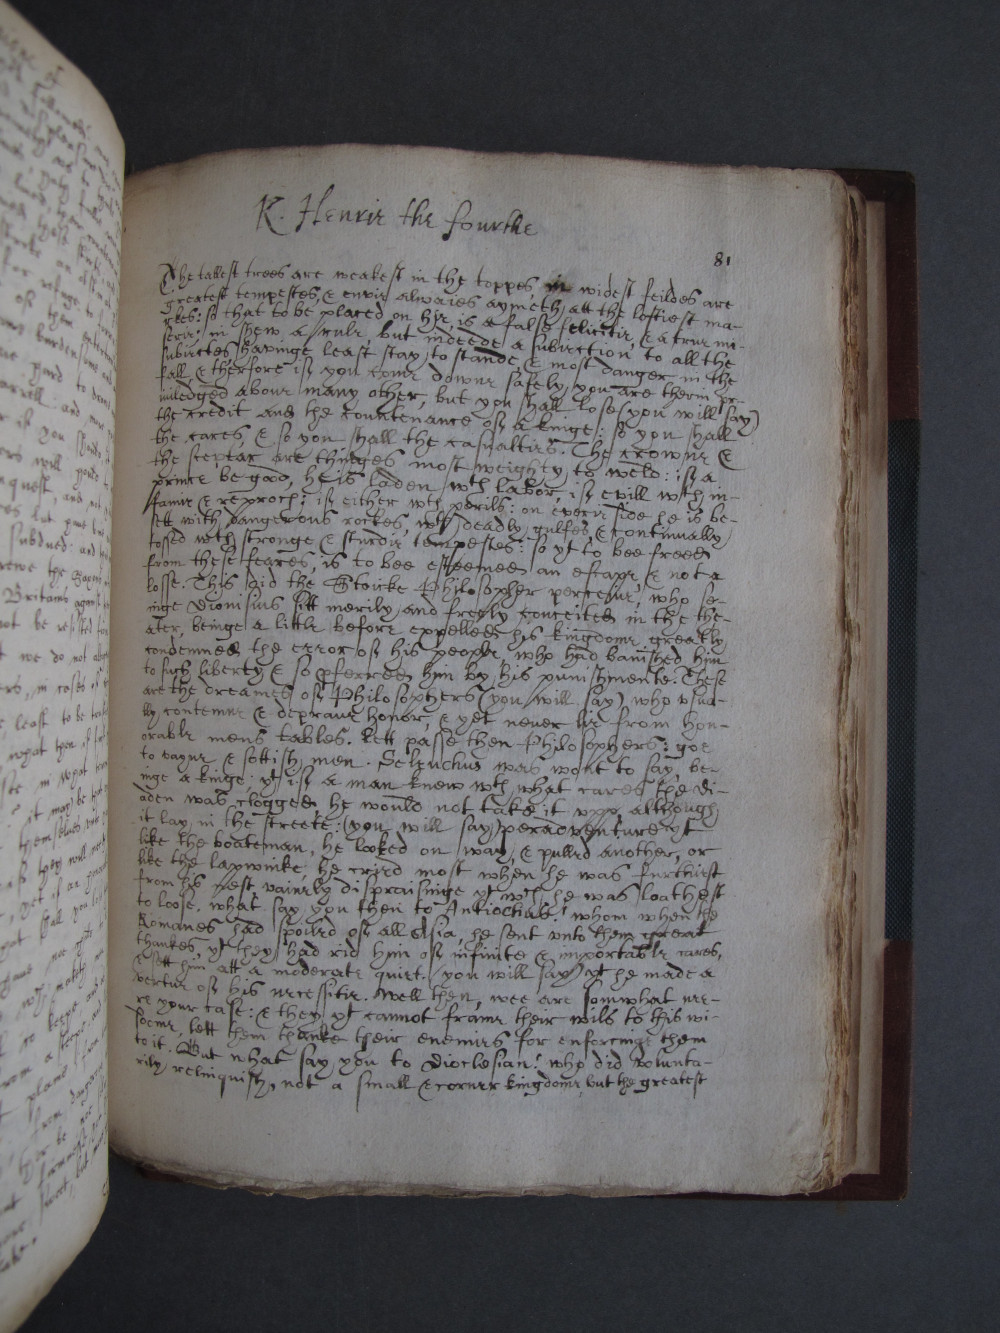 K. Henrie the fourthe
81
The tallest trees are weakest in the toppes, in widest feildes are
greatest tempestes, & envie alwaies aymeth att the loftiest ma-
rkes: so that to be placed on hye is a false felicitie, & a true mi-
serie: in shew a rule, but indeede a subiection to all the
subiectes, havinge least stay to stande, & most danger in the
fall, & therfore if you come downe safely, you are therin pr-
iuiledged aboue many other, but you shall lose (you will say)
the credit and the countenance of a kinge: so you shall
the cares, & so you shall the casualties. The crowne &
the scepter are thinges most weighty to weld: if a
prince be good, he is laden wth labor, if evill wth in-
famie & reproch: if either wth perils: on everie side he is be-
sett with dangerous rockes, wth deadly gulfes, & continually
tossed wth stronge & sturdie tempestes: so yt to bee freed
from these feares, is to bee esteemed an escape, & not a
losse. This did the Stoicke Philosopher perceiue, who se-
inge Dionisius sitt merily and freely conceited in the the-
ater, beinge a little before expelled his kingdome, greatly
condemned the error of his people, who had banished him
to such liberty & so pferred him by his punishmente. These
are the dreames of Philosophers (you will say) who vsua-
lly contemne & depraue honor, & yet never lie from hon-
orable mens tables. Lett passe then Philosophers: goe
to vayne & sottish men. Seleuchus was wont to say, be-
inge a kinge: yt if a man knew wth what cares the di-
adem was clogged he would not take it vpp, although
it lay in the streete: (you will say) peradventure yt
like the boateman, he looked on way, & pulled another, or
like the lapwinke, he cried most when he was furthest
from his nest vainely dispraisinge yt wch he was loathest
to loose. what say you then to Antiochus? whom when the
Romanes had spoiled of all Asia, he sent vnto them great
thankes, yt they had rid him of infinite & importable cares,
& sett him att a moderate quiet. (you will say) yt he made a
vertue of his necessitie. Well then, wee are somwhat nee-
re your case: & they yt cannot frame their wils to this wi-
sdome, lett them thanke their enemies for enforcinge them
to it. But what say you to Dioclesian? who did volunta-
rily relinquish, not a small & corner kingdome, but the greatest